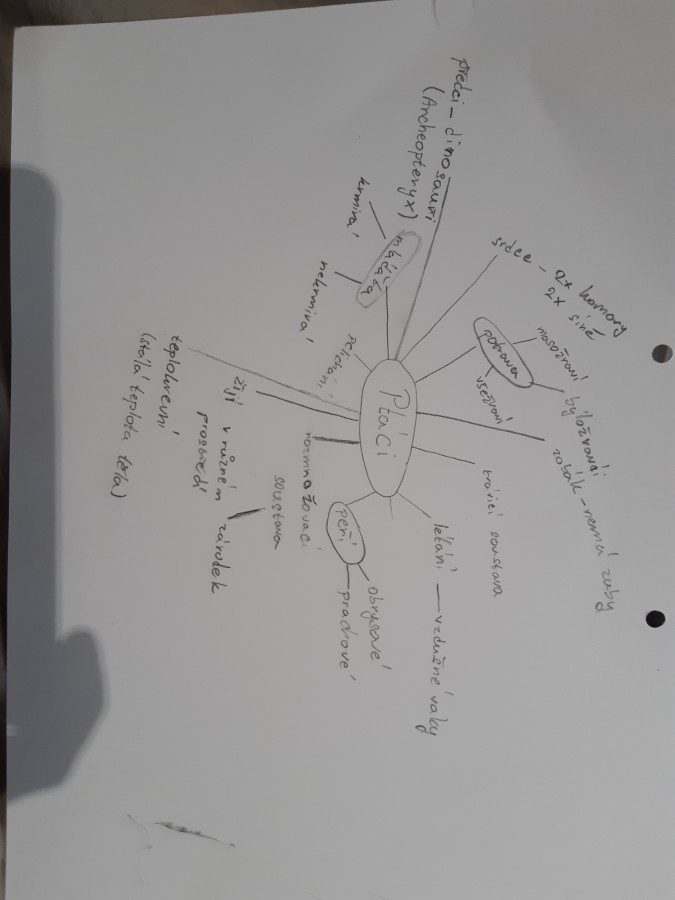 Ptáci
předci - dinosauři
(Archeopteryx)
srdce - 2x komory
2x síně
potrava
masožraví
býložraví
všežraví
zobák - nemá zuby
trávicí soustava
létání - vzdušné vaky
peří
obrysové
prachové
rozmnožovací
soustava
zárodek
žijí v různém
prostředí
teplokrevní
(stálá teplota těla)
mláďata
krmivá
nekrmivá